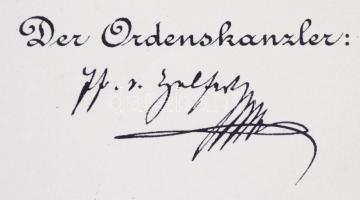 Der Ordenskanzler:
v. Helfert